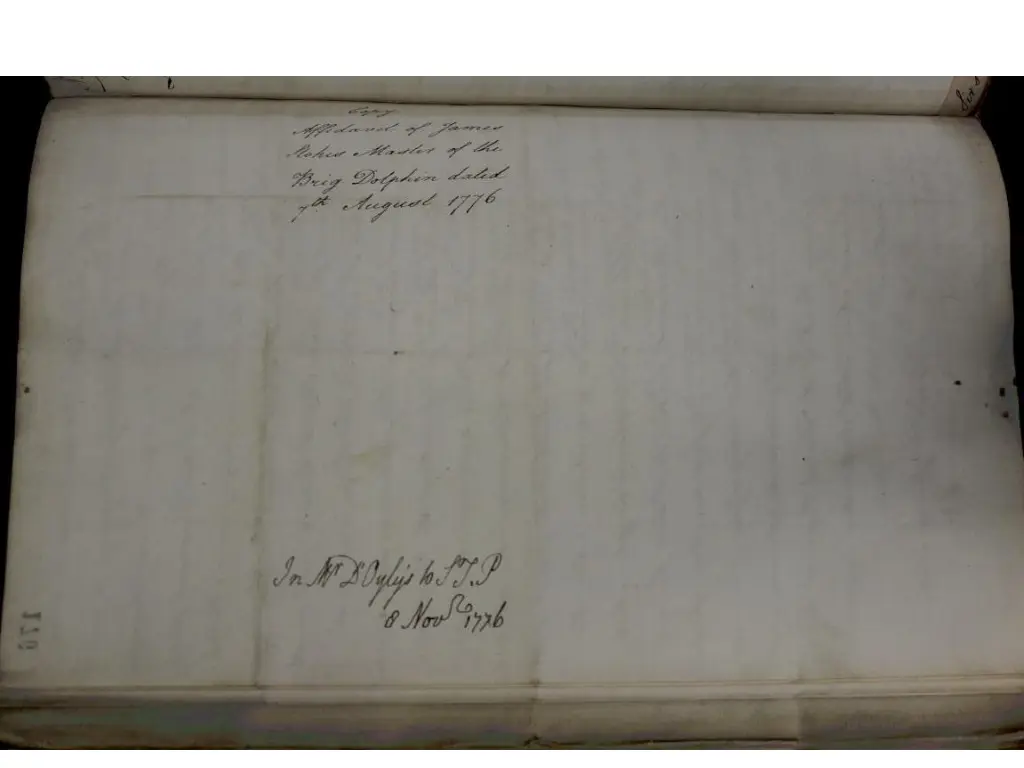 Copy
Affidavit of James
Master of the
Brig Dolphin dated
7th August 1776
In Mr D'Oyly's to S T. P
8 Novr 1776
176